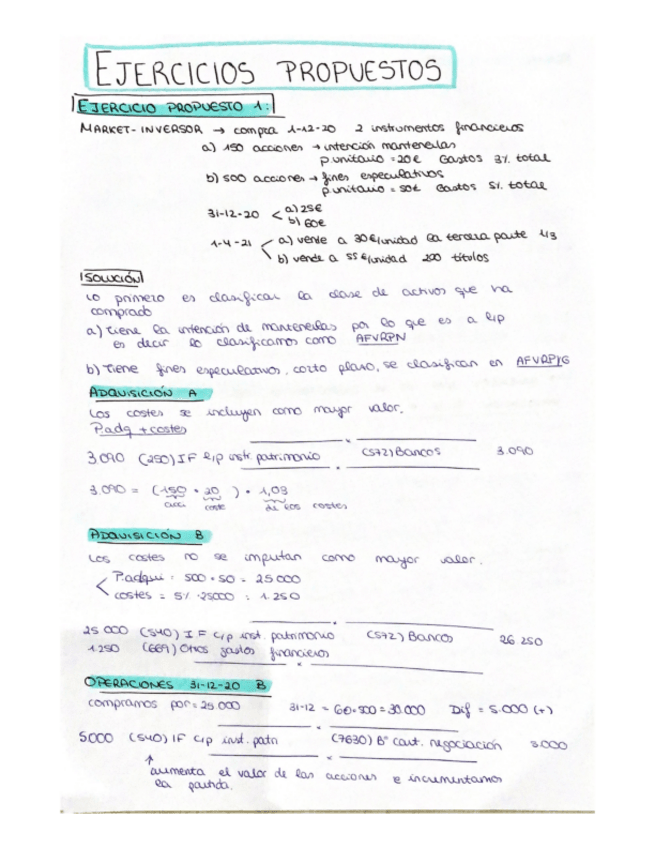 EJERCICIOS PROPUESTOS
EJERCICIO PROPUESTO 1:
MARKET-INVERSOR → compra 1-12-20 2 instrumentos financieros
a) 150 acciones → intención mantenerlas
p.unitario = 20€ Gastos 3% total
b) 500 acciones → fines especulativos
p.unitario = 50€ Gastos 5% total
31-12-20 < a) 25€
b) 60€
1-4-21 < a) vende a 30€/unidad la tercera parte 1/3
b) vende a 55€/unidad 200 títulos
SOLUCIÓN
Lo primero es clasificar la clase de activos que ha
comprado
a) Tiene la intención de mantenerlas por lo que es a l/p
es decir lo clasificamos como AFVRPN
b) Tiene fines especulativos, corto plazo, se clasifican en AFVRP/G
ADQUISICIÓN A
Los costes se incluyen como mayor valor.
P.adq + costes
3.090 (250) IF l/p instr patrimonio (572) Bancos 3.090
3.090 = (150 · 20) · 1,03
acci coste de los costes
ADQUISICIÓN B
Los costes no se imputan como mayor valor.
< P.adqui = 500 · 50 = 25000
costes = 5% · 25000 = 1.250
25 000 (540) IF c/p inst. patrimonio (572) Bancos 26 250
1.250 (669) Otros gastos financieros
OPERACIONES 31-12-20 B
compramos por = 25.000 31-12 = 60·500 = 30.000 Dif = 5.000 (+)
5000 (540) IF c/p inst. patri (7630) Bº cart. negociación
↑
aumenta el valor de las acciones e incrementamos
la partida.